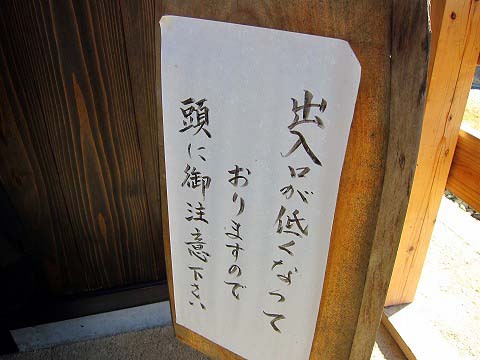 出入口が低くなって
おりますので
頭に御注意下さい